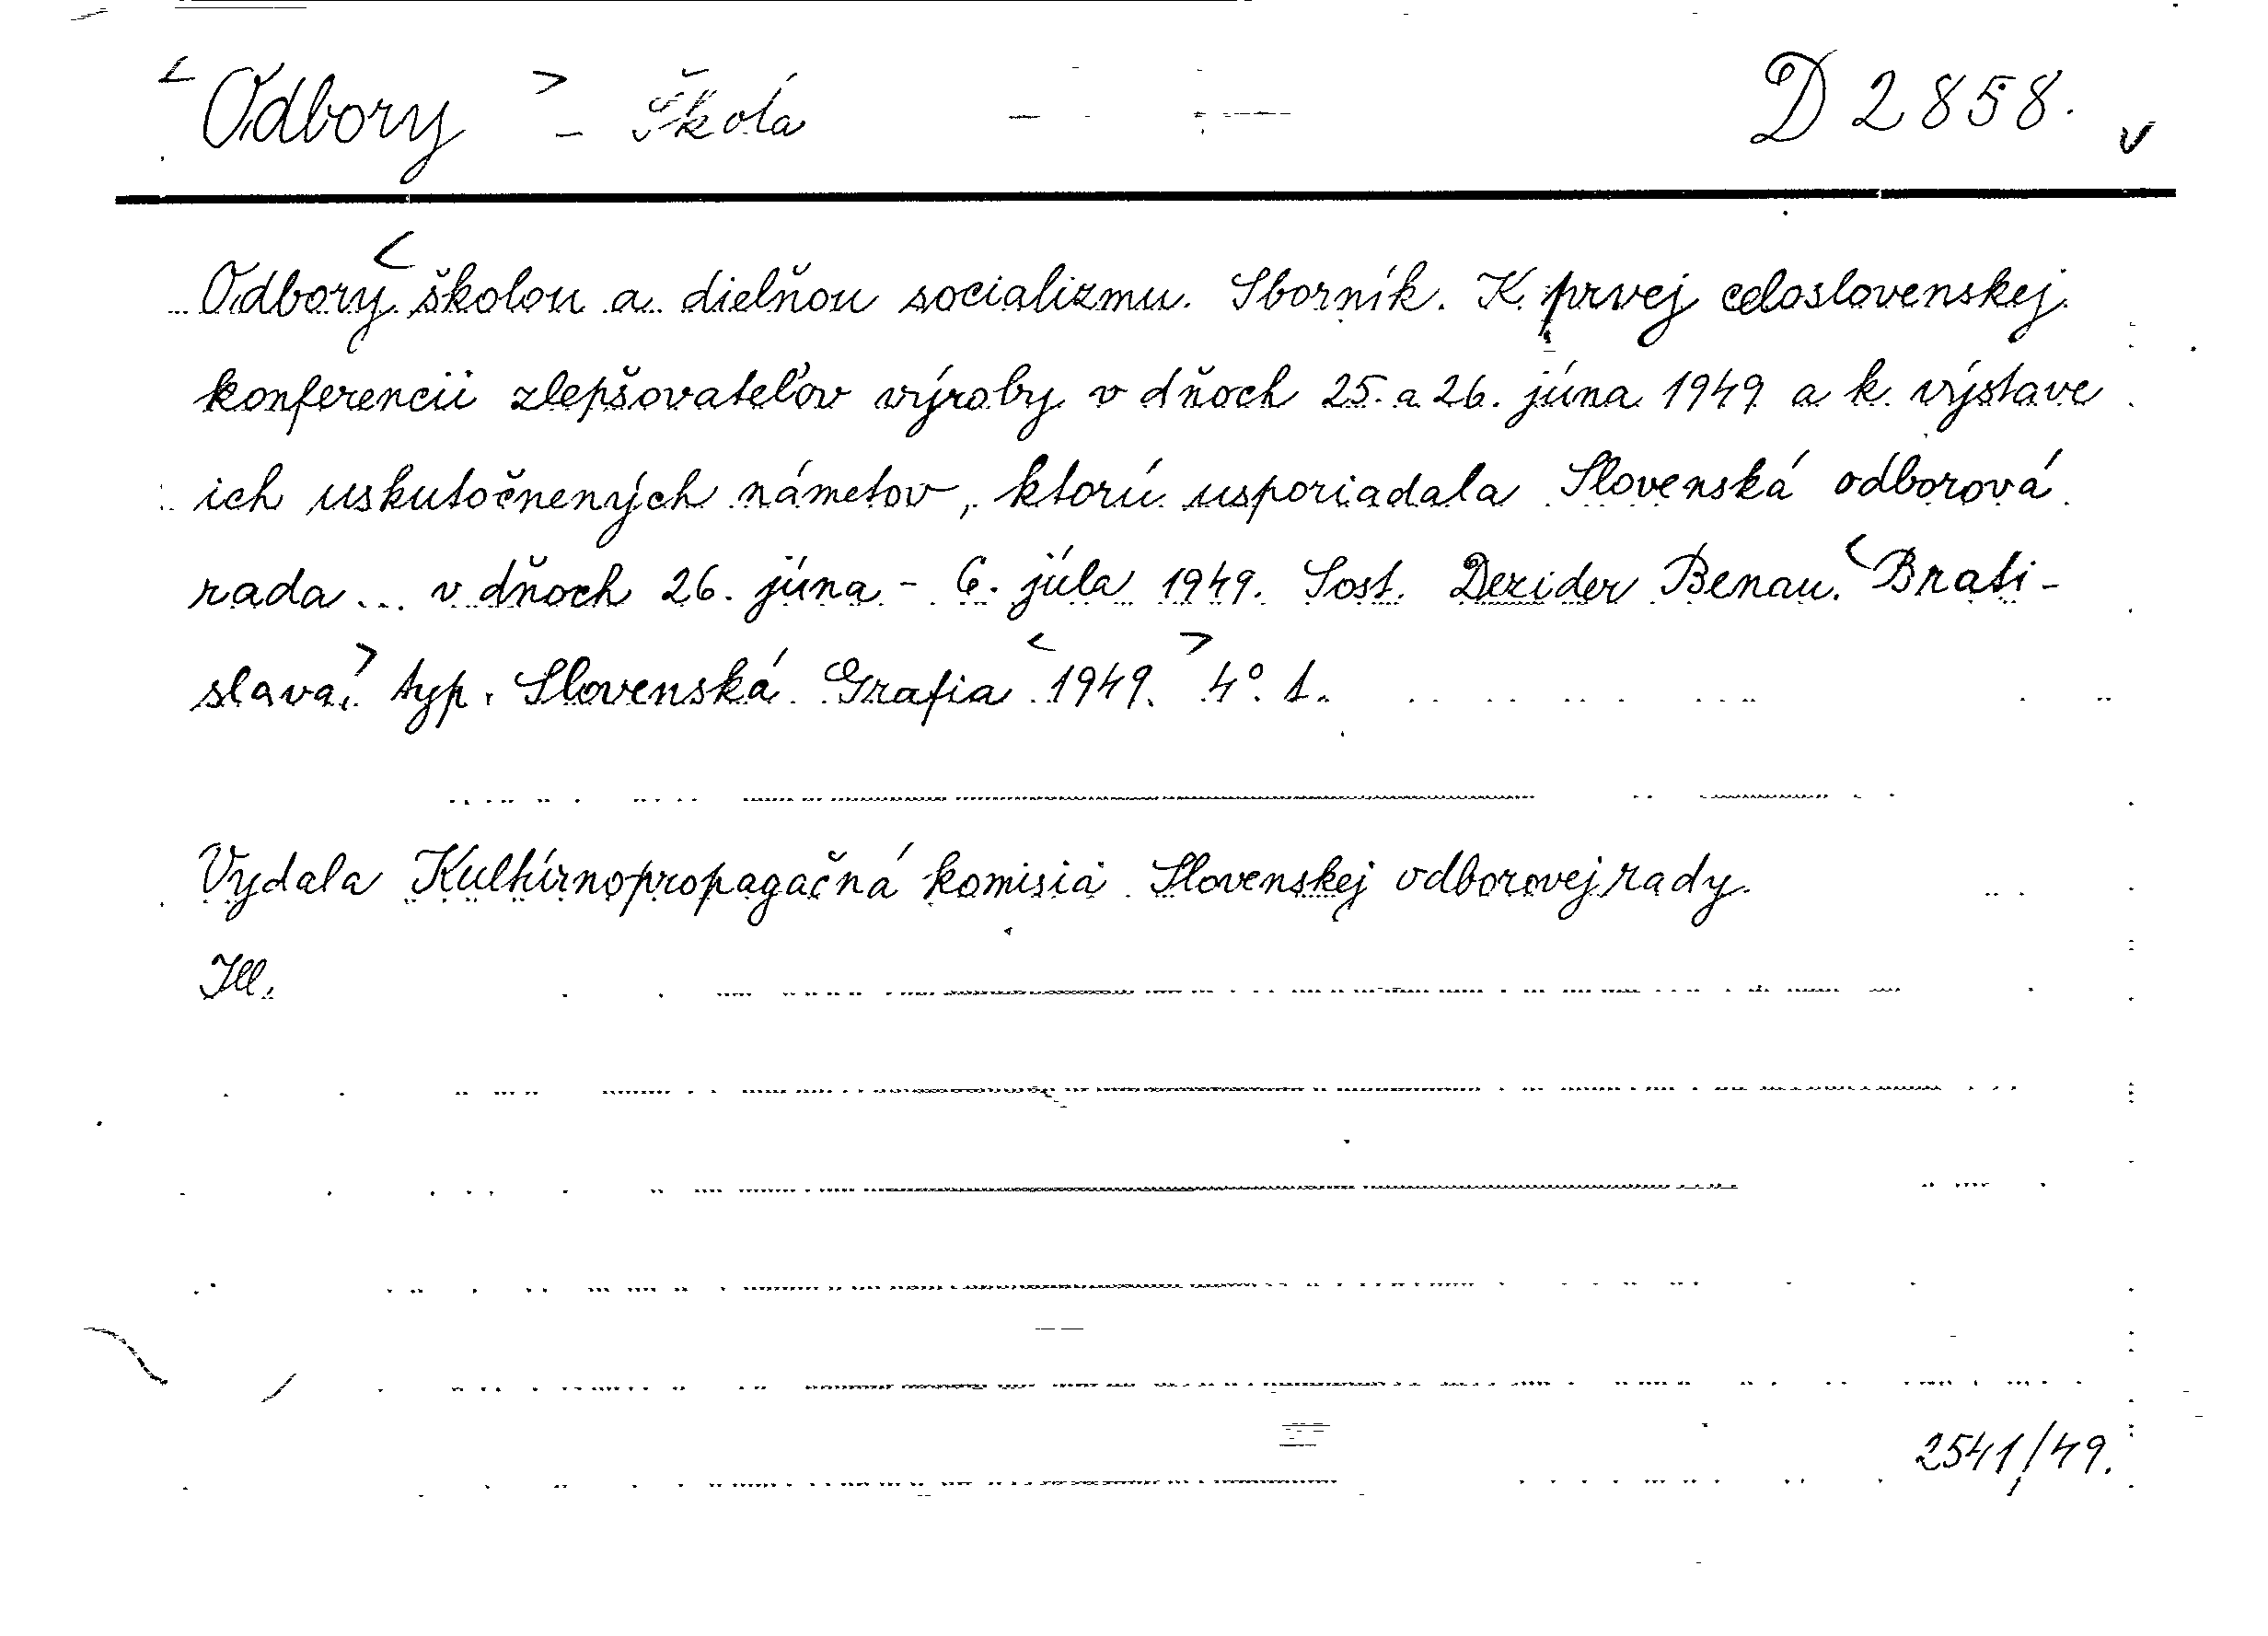 < Odbory > - Škola D 2858. v
Odbory < školou a dielňou socializmu. Sborník. K prvej celoslovenskej
konferencii zlepšovateľov výroby v dňoch 25. a 26. júna 1949 a k výstave
ich uskutočnených námetov, ktorú usporiadala Slovenská odborová
rada... v dňoch 26. júna - 6. júla 1949. Sost. Dezider Benau. < Brati-
slava, > typ. Slovenská Grafia < 1949. > 4° 1.
Vydala Kultúrnopropagačná komisia Slovenskej odborovej rady.
Ill.
2541/49.